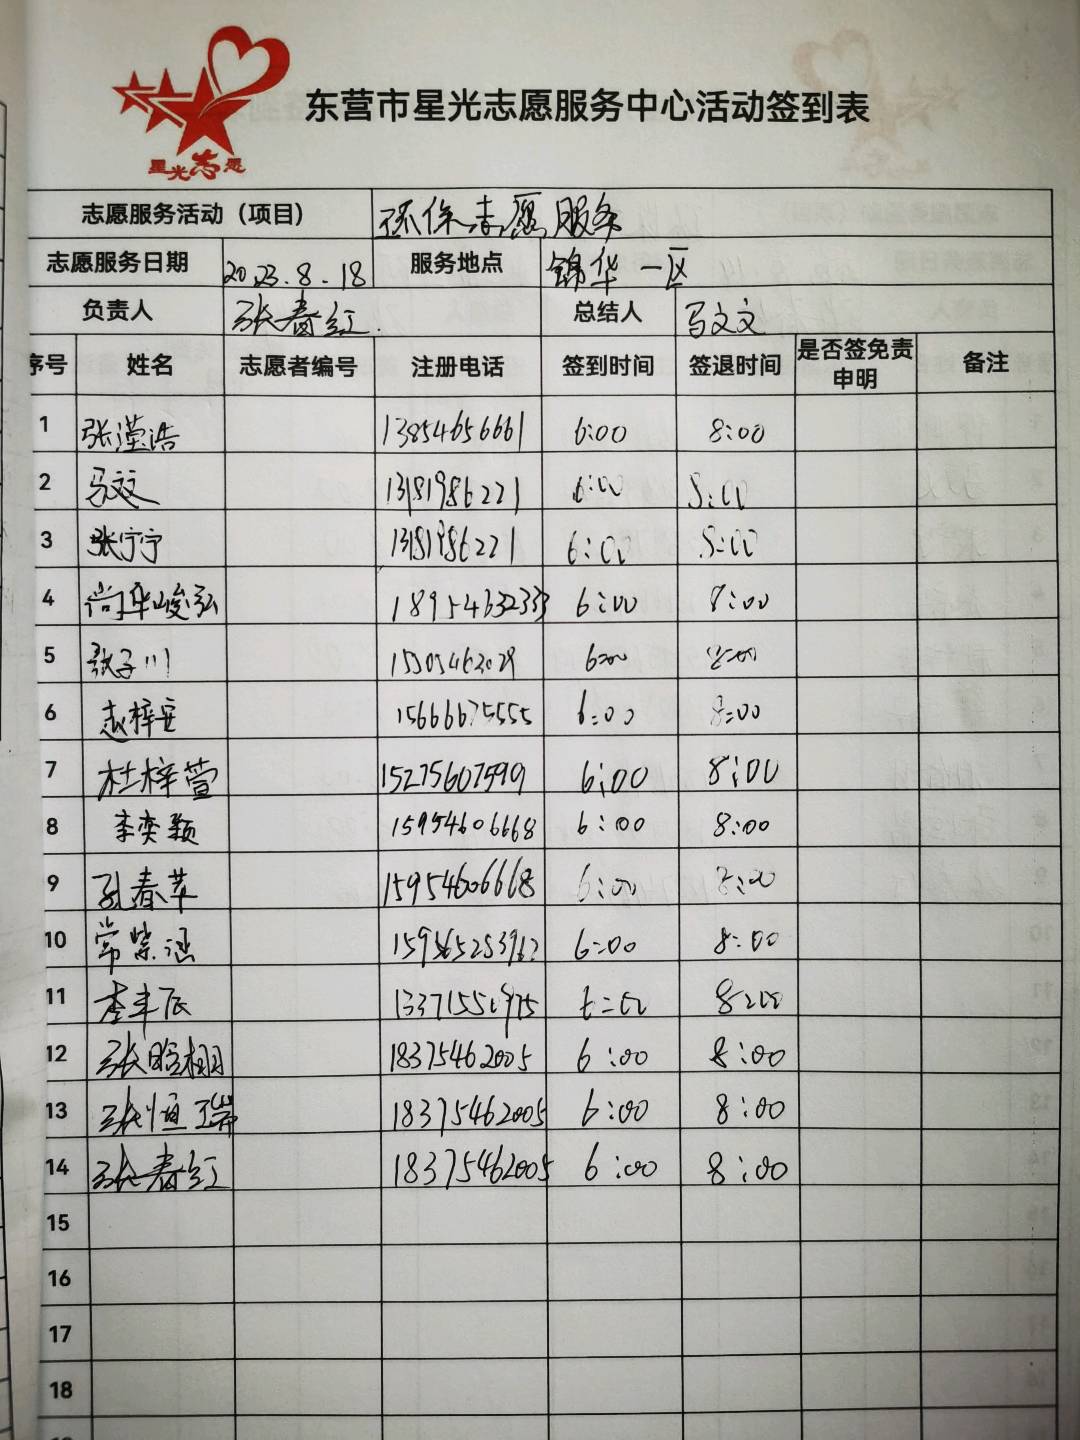 星光志愿
东营市星光志愿服务中心活动签到表
志愿服务活动（项目） 环保志愿服务
志愿服务日期 2023.8.18 服务地点 锦华一区
负责人 张春红. 总结人 马文文
序号 姓名 志愿者编号 注册电话 签到时间 签退时间 是否签免责申明 备注
1 张滢浩 13854656661 6:00 8:00
2 马文文 13181986221 6:00 8:00
3 张宁宁 13181986221 6:00 8:00
4 尚华峻弘 18954632333 6:00 8:00
5 张子川 6:00 8:00
6 赵梓安 15666675555 6:00 8:00
7 杜梓萱 15275607599 6:00 8:00
8 李奕颖 15954606668 6:00 8:00
9 孔春苹 15954606668 6:00 8:00
10 常紫涵 6:00 8:00
11 李丰辰 6:00 8:00
12 18375462005 6:00 8:00
13 张恒瑞 18375462005 6:00 8:00
14 张春红 18375462005 6:00 8:00
15
16
17
18